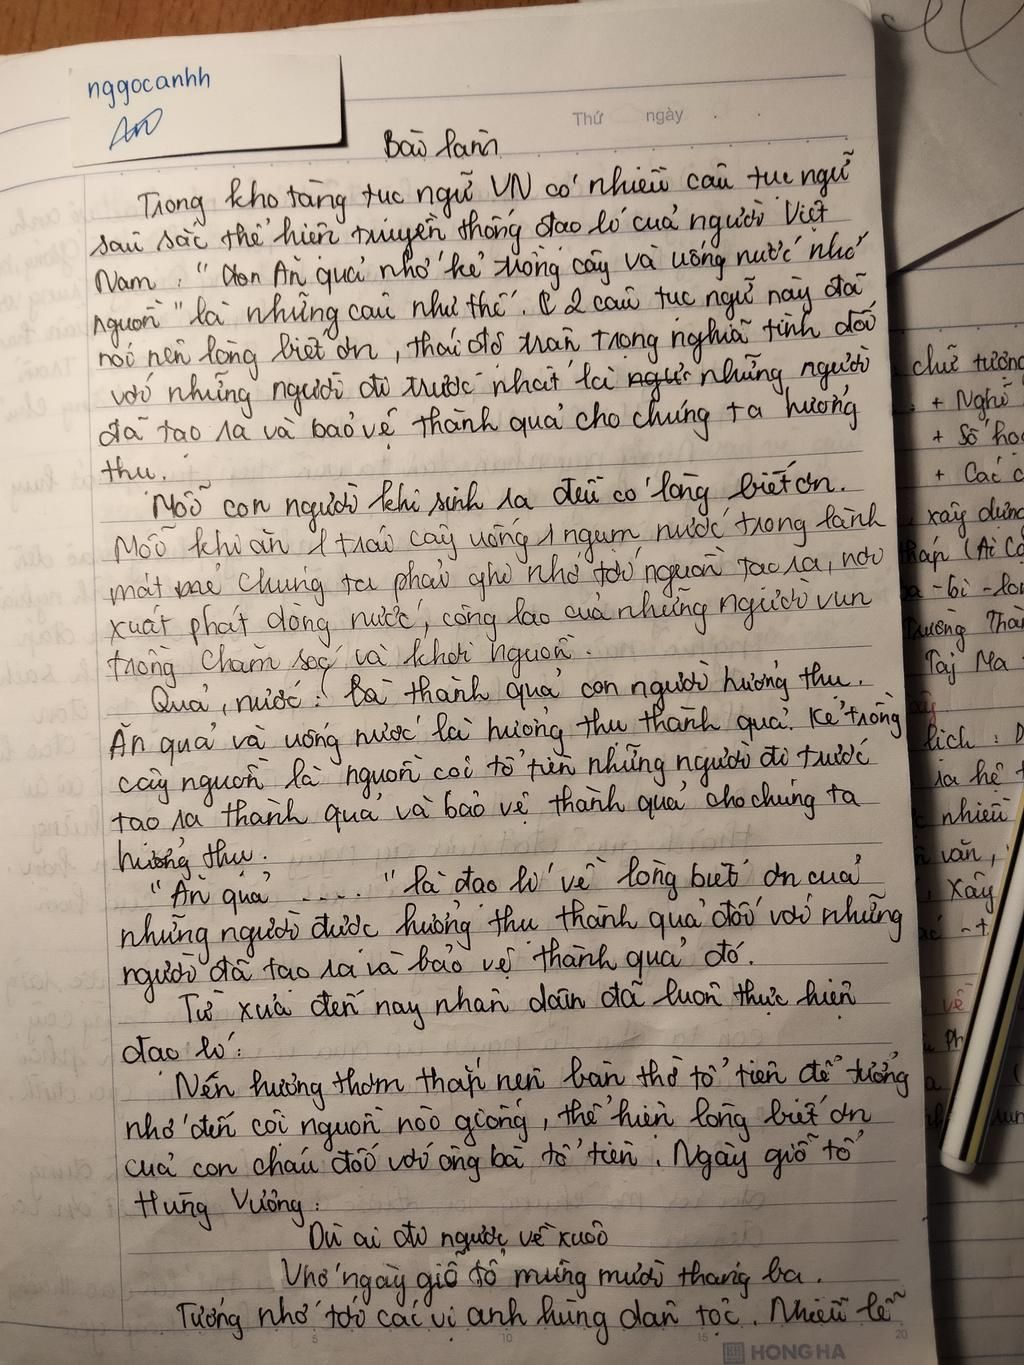 nggocanhh
Thứ ngày
Bài làm
Trong kho tàng tục ngữ VN có nhiều câu tục ngữ
sâu sắc thể hiện truyền thống đạo lí của người Việt
Nam. "Ăn quả nhớ kẻ trồng cây và uống nước nhớ
nguồn" là những câu như thế. 2 câu tục ngữ này đã
nói nên lòng biết ơn, thái độ trân trọng nghĩa tình đối
với những người đi trước nhất là những người
đã tạo ra và bảo vệ thành quả cho chúng ta hưởng
thụ.
Mỗi con người khi sinh ra đều có lòng biết ơn.
Mỗi khi ăn 1 trái cây uống 1 ngụm nước trong lành
mát mẻ chúng ta phải ghi nhớ tới nguồn tạo ra, nơi
xuất phát dòng nước, công lao của những người vun
trồng chăm sóc và khơi nguồn.
Quả, nước: Là thành quả con người hưởng thụ.
Ăn quả và uống nước là hưởng thụ thành quả. Kẻ trồng
cây nguồn là nguồn cội tổ tiên những người đi trước
tạo ra thành quả và bảo vệ thành quả cho chúng ta
hưởng thụ.
"Ăn quả ....." là đạo lí về lòng biết ơn của
những người được hưởng thụ thành quả đối với những
người đã tạo ra và bảo vệ thành quả đó.
Từ xưa đến nay nhân dân đã luôn thực hiện
đạo lí:
Nén hương thơm thắp nên bàn thờ tổ tiên để tưởng
nhớ đến cội nguồn nòi giống, thể hiện lòng biết ơn
của con cháu đối với ông bà tổ tiên. Ngày giỗ tổ
Hùng Vương:
Dù ai đi ngược về xuôi
Nhớ ngày giỗ tổ mùng mười tháng ba.
Tưởng nhớ tới các vị anh hùng dân tộc. Nhiều lễ
5 10 15 20
HONG HA
chữ tượng
+ Nghị
+ Số học
+ Các c
xây dựng
tháp (Ai Cậ
-bi-lon
Trường Thàn
Taj Ma
lịch:
ra hệ t
nhiều
văn,
Xây
về